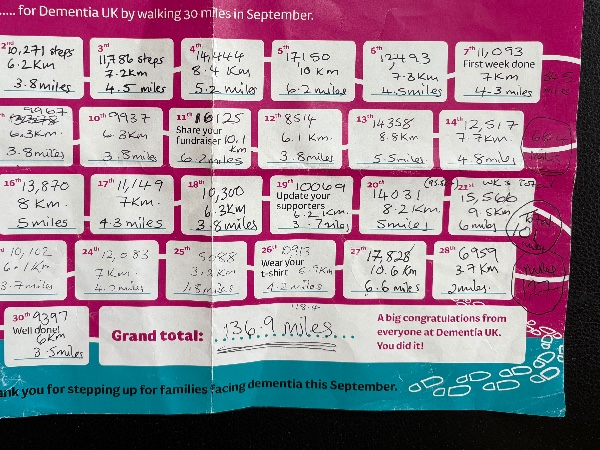 for Dementia UK by walking 30 miles in September.
2nd 10,271 steps
6.2Km
3.8miles
3rd
11,786 steps
7.2km
4.5 miles
4th
14,444
8.4 Km
5.2 miles
5th
17150
10 Km
6.2 miles
6th
12493
7.3Km
4.5miles
7th 11,093
First week done
7Km
4.3 miles
9967
6.3Km.
3.8miles
10th 9937
6.3Km
3.8miles
11th 16125
Share your
fundraiser 10.1
km
6.2miles
12th 8514
6.1 Km.
3.8miles
13th 14358
8.8Km
5.5miles
14th 12,517
7.7Km.
4.8miles
16th 13,870
8 Km.
5miles
17th 11,149
7Km.
4.3 miles
18th
10,300
6.3Km
3.8miles
19th 10069
Update your
supporters
6.2 Km.
miles
20th
14031
8.2Km.
5miles
21st
15,566
9.5Km
6miles
10,162
6.1Km
3.7miles
24th 12,083
7Km
miles
25th
Km
miles
26th
Wear your
t-shirt
4.2 miles
27th
17,828
10.6Km
6.6 miles
28th 6959
3.7Km
2miles
30th 9397
Well done!
6Km
3.5miles
Grand total: 136.9 miles
A big congratulations from
everyone at Dementia UK.
You did it!
ank you for stepping up for families facing dementia this September.